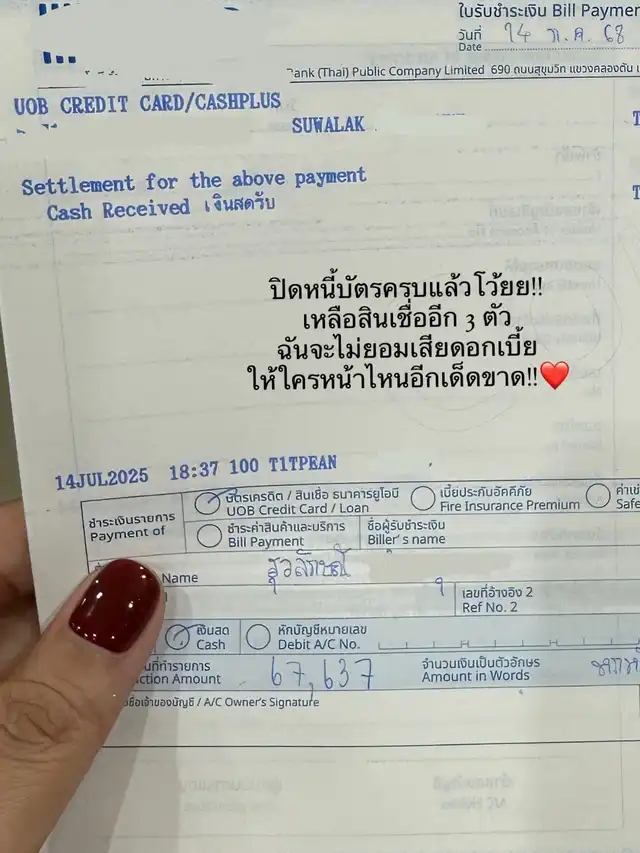 ใบรับชำระเงิน Bill Paymen
วันที่ 14 ก.ค. 68
Date
Bank (Thai) Public Company Limited 690 ถนนสุขุมวิท แขวงคลองตัน
UOB CREDIT CARD/CASHPLUS
SUWALAK
Settlement for the above payment
Cash Received เงินสดรับ
ปิดหนี้บัตรครบแล้วโว้ยย!!
เหลือสินเชื่ออีก 3 ตัว
ฉันจะไม่ยอมเสียดอกเบี้ย
ให้ใครหน้าไหนอีกเด็ดขาด!!❤️
14JUL2025 18:37 100 T1TPEAN
ชำระเงินรายการ
Payment of
บัตรเครดิต / สินเชื่อ ธนาคารยูโอบี
UOB Credit Card / Loan
เบี้ยประกันอัคคีภัย
Fire Insurance Premium
ค่าเช่
Safe
ชำระค่าสินค้าและบริการ
Bill Payment
ชื่อผู้รับชำระเงิน
Biller's name
Name สุวลักษณ์
เลขที่อ้างอิง 2
Ref No. 2
เงินสด
Cash
หักบัญชีหมายเลข
Debit A/C No.
นที่ทำรายการ
ction Amount 67,637
จำนวนเงินเป็นตัวอักษร
Amount in Words
ชื่อเจ้าของบัญชี / A/C Owner's Signature